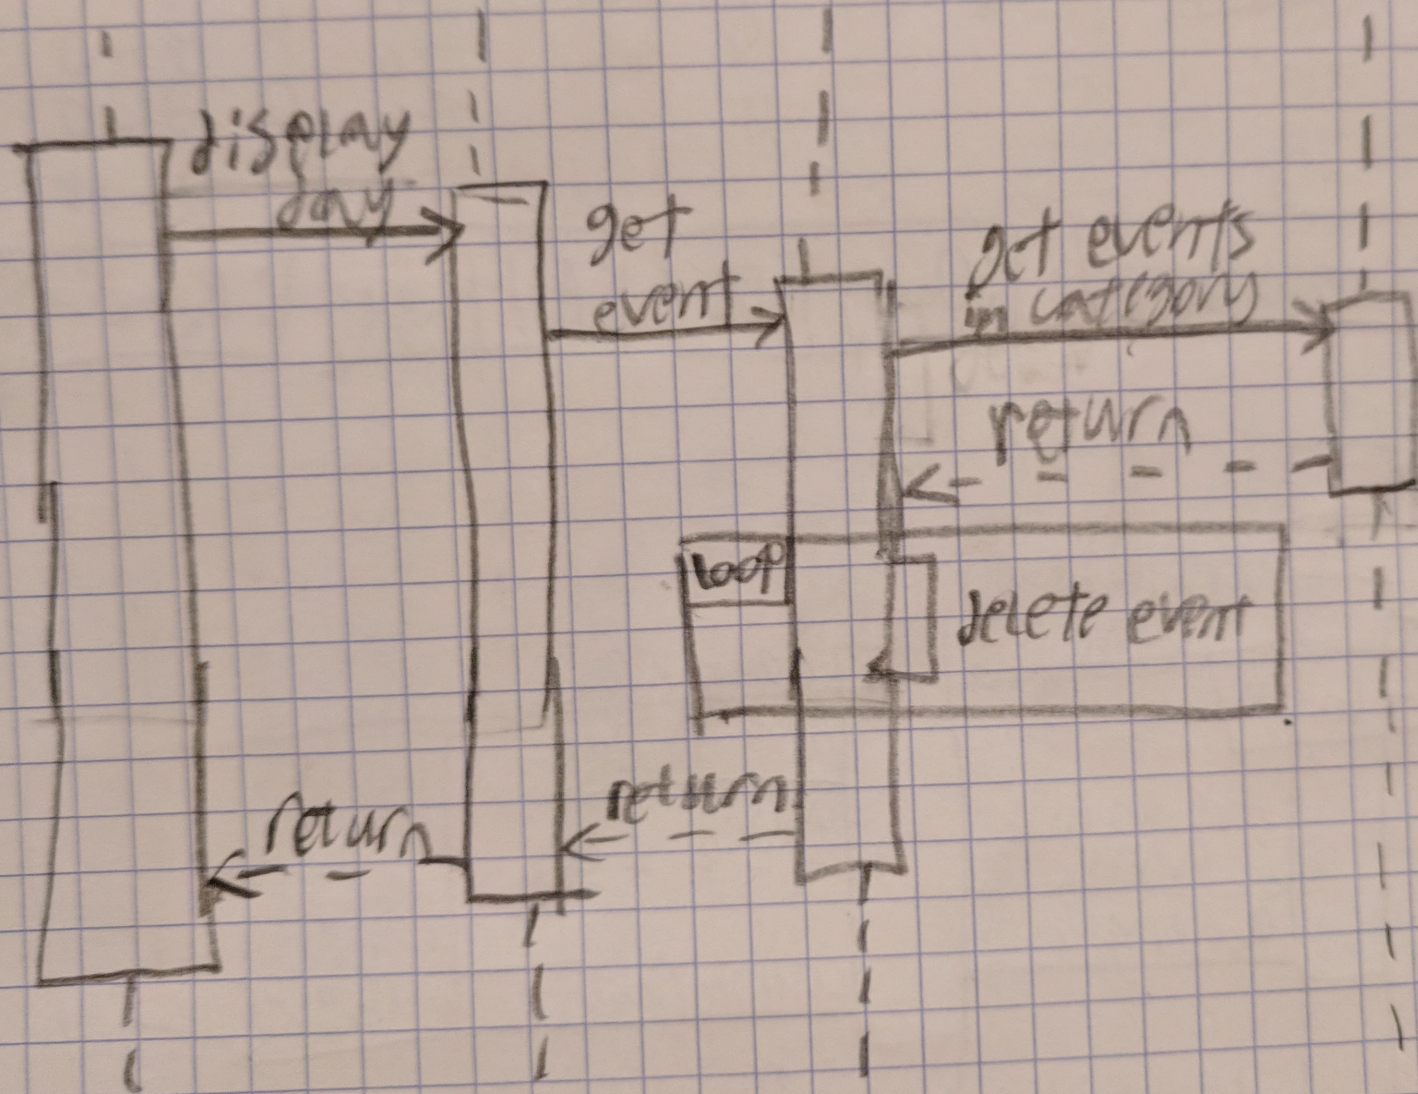 display
day
get
event
get events
in category
return
loop
delete event
return
return